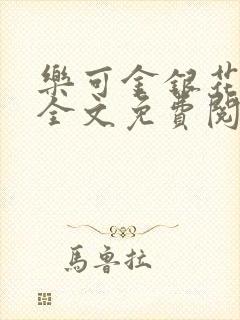 樂可金銀花
全文免費閱
馬魯拉